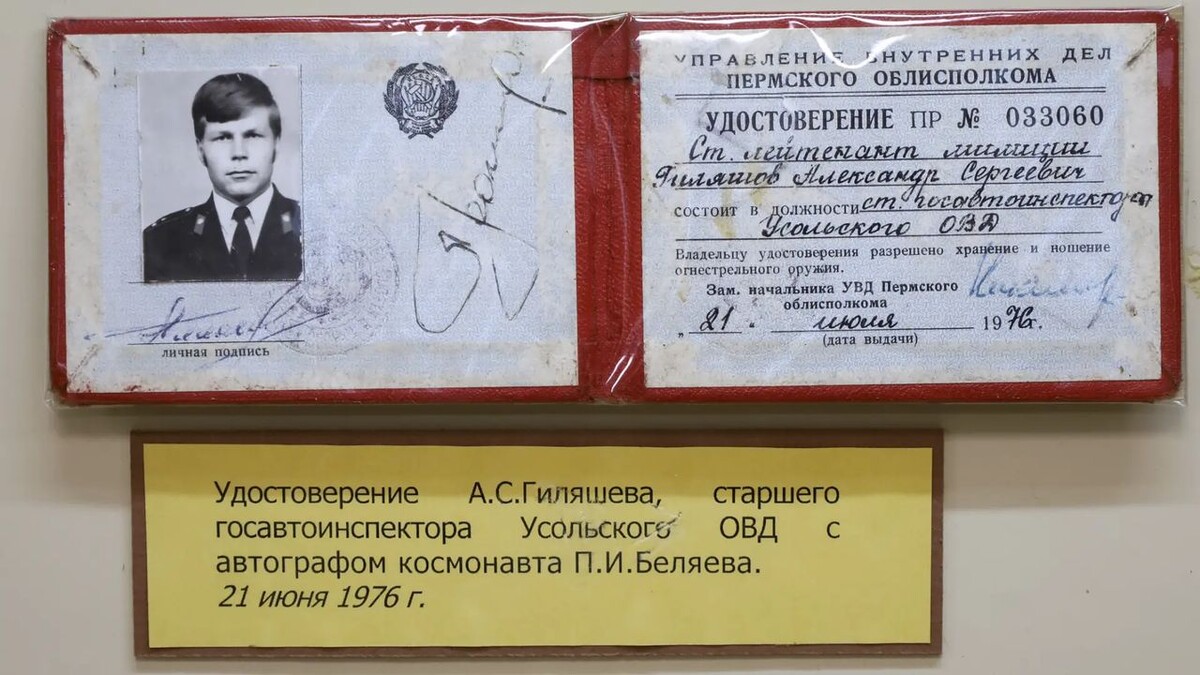 личная подпись
УПРАВЛЕНИЕ ВНУТРЕННИХ ДЕЛ
ПЕРМСКОГО ОБЛИСПОЛКОМА
УДОСТОВЕРЕНИЕ ПР № 033060
Ст. лейтенант милиции
Гиляшов Александр Сергеевич
состоит в должности ст. госавтоинспектора
Усольского ОВД
Владельцу удостоверения разрешено хранение и ношение
огнестрельного оружия.
Зам. начальника УВД Пермского
облисполкома
„ 21 " июля 1976г.
(дата выдачи)
Удостоверение А.С.Гиляшева, старшего
госавтоинспектора Усольского ОВД с
автографом космонавта П.И.Беляева.
21 июня 1976 г.